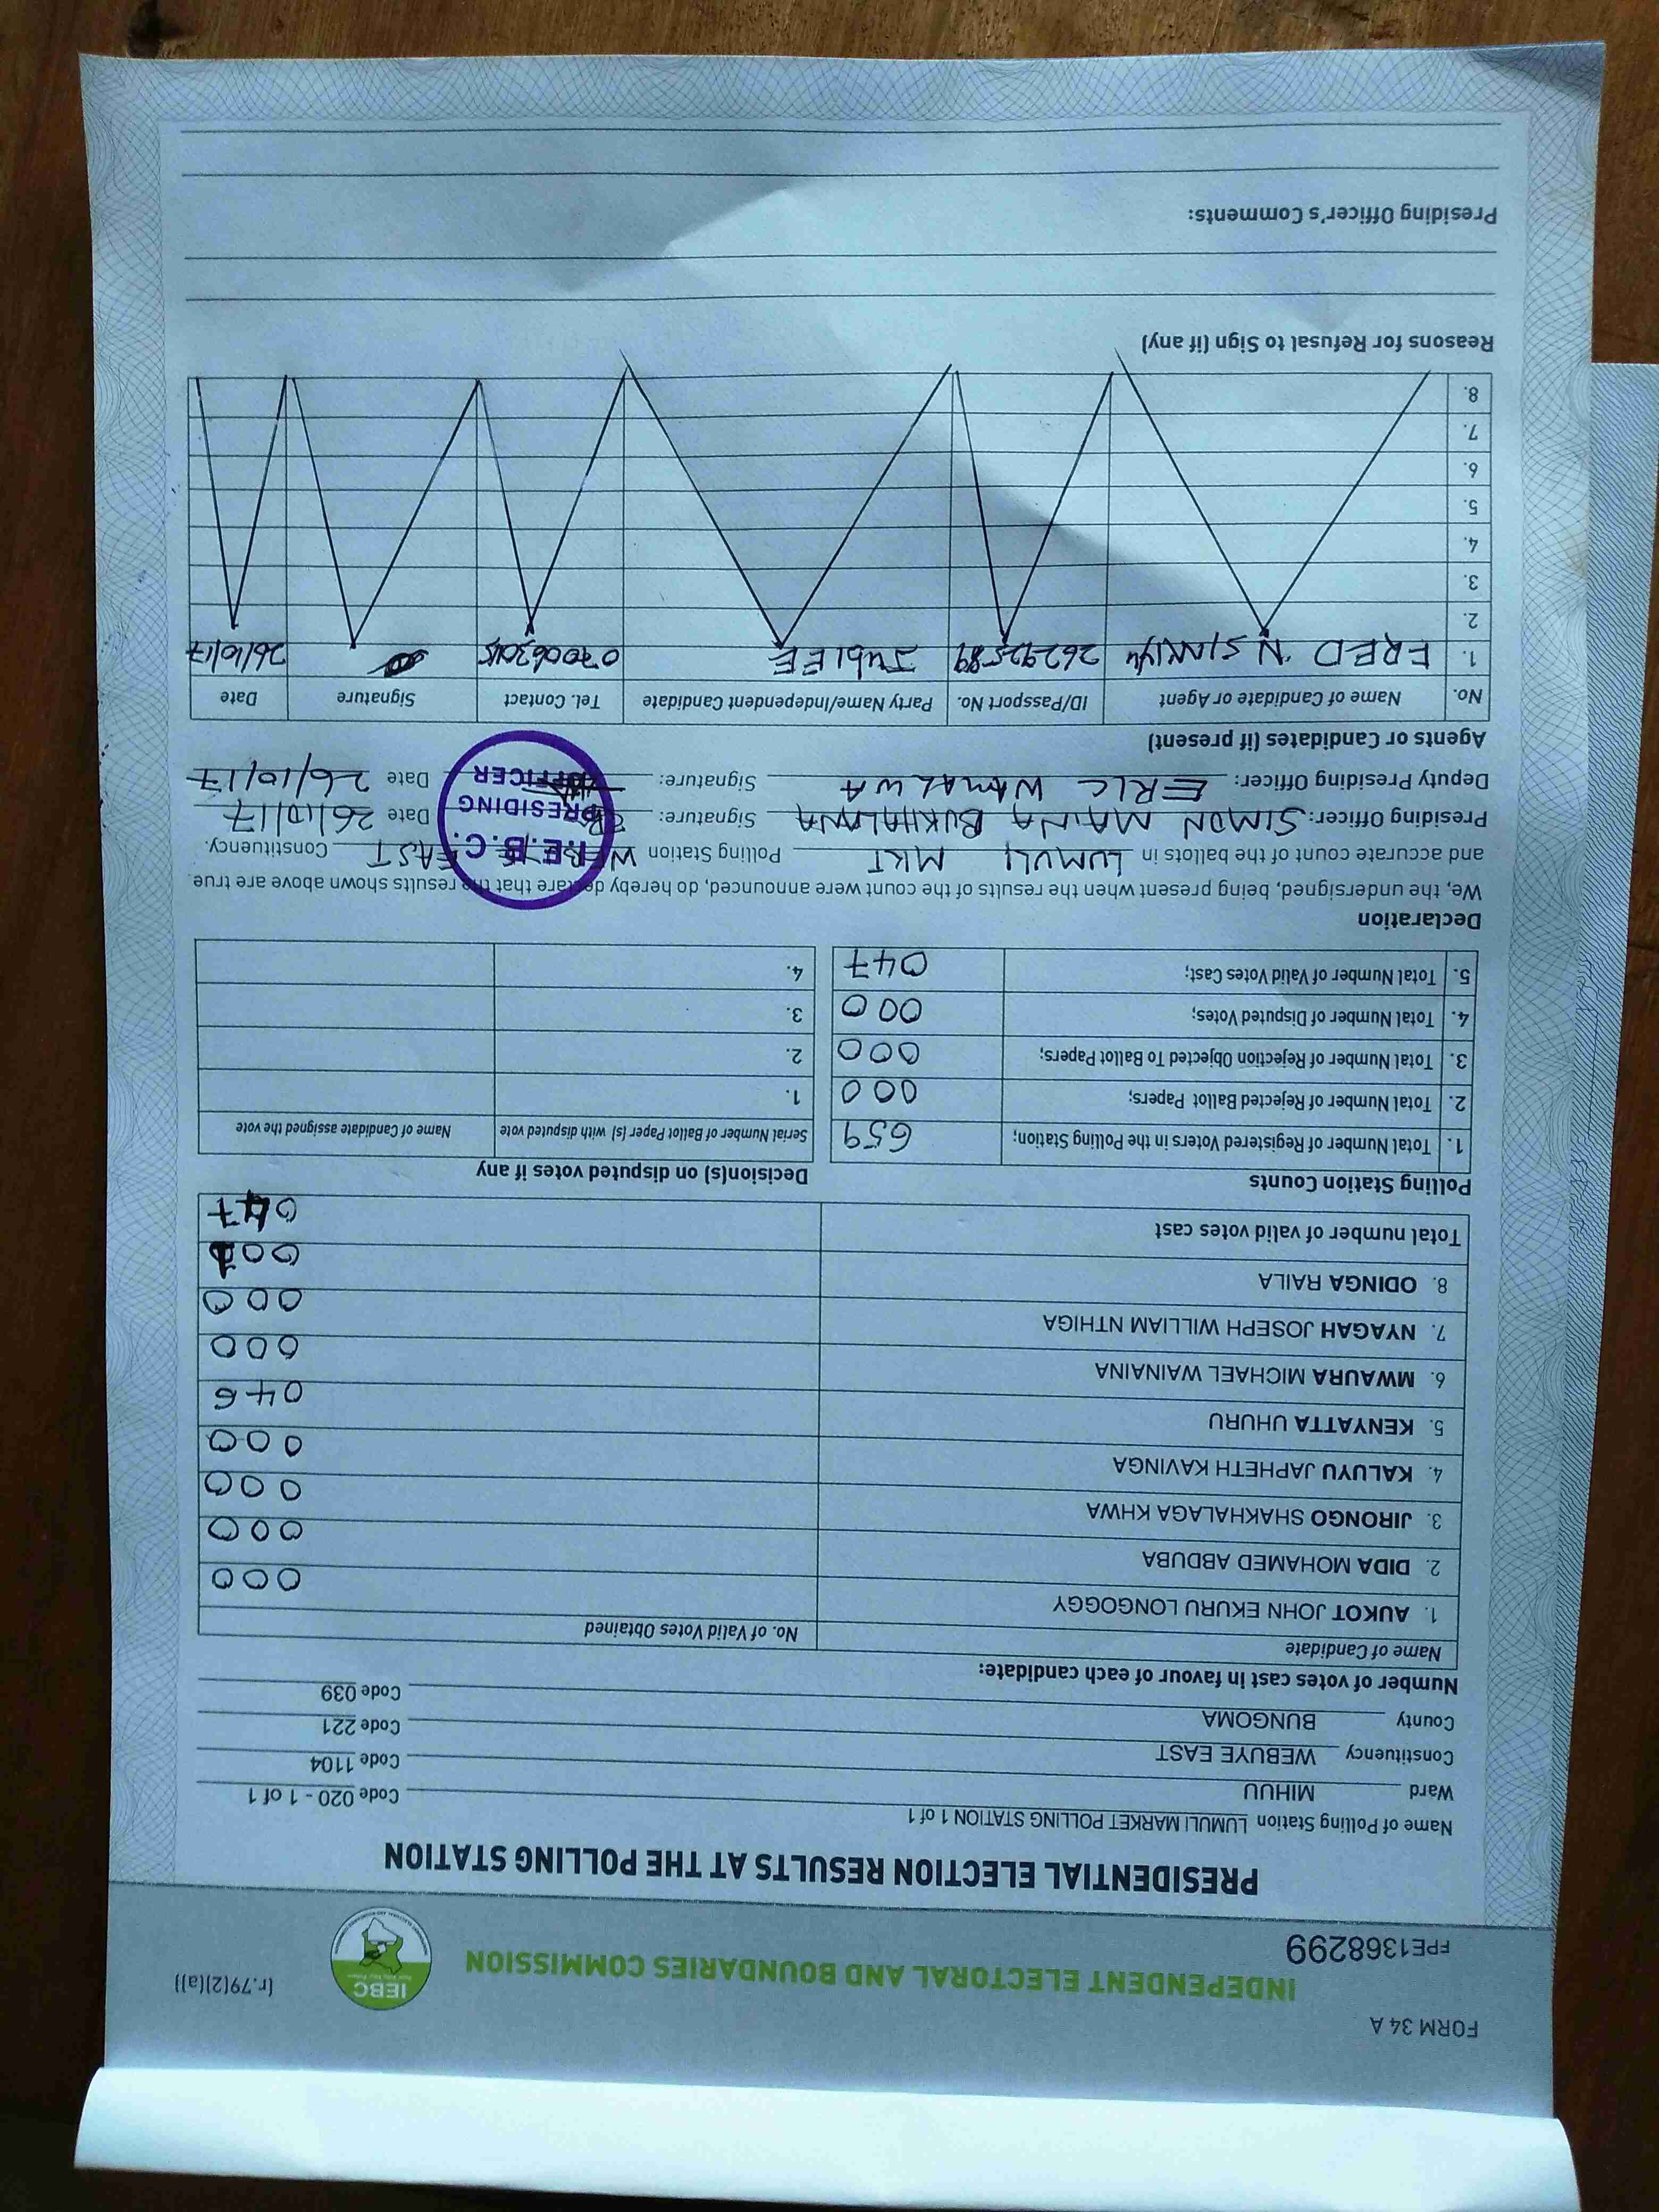 FORM 34 A
(r.79(2)(a))
INDEPENDENT ELECTORAL AND BOUNDARIES COMMISSION
IEBC
FPE1368299
PRESIDENTIAL ELECTION RESULTS AT THE POLLING STATION
Name of Polling Station LUMULI MARKET POLLING STATION 1 of 1 Code 020 - 1 of 1
Ward MIHUU Code 1104
Constituency WEBUYE EAST Code 221
County BUNGOMA Code 039
Number of votes cast in favour of each candidate:
Name of Candidate No. of Valid Votes Obtained
1. AUKOT JOHN EKURU LONGOGGY 000
2. DIDA MOHAMED ABDUBA 000
3. JIRONGO SHAKHALAGA KHWA 000
4. KALUYU JAPHETH KAVINGA 000
5. KENYATTA UHURU 046
6. MWAURA MICHAEL WAINAINA 000
7. NYAGAH JOSEPH WILLIAM NTHIGA 000
8. ODINGA RAILA 001
Total number of valid votes cast 047
Polling Station Counts
1. Total Number of Registered Voters in the Polling Station; 659
2. Total Number of Rejected Ballot Papers; 000
3. Total Number of Rejection Objected To Ballot Papers; 000
4. Total Number of Disputed Votes; 000
5. Total Number of Valid Votes Cast; 047
Decision(s) on disputed votes if any
Serial Number of Ballot Paper (s) with disputed vote Name of Candidate assigned the vote
1.
2.
3.
4.
Declaration
We, the undersigned, being present when the results of the count were announced, do hereby declare that the results shown above are true
and accurate count of the ballots in LUMULI MKT Polling Station WEBUYE EAST Constituency.
Presiding Officer: SIMON MAINA BUKHALANA Signature: Date 26/10/17
Deputy Presiding Officer: ERIC WAMALWA Signature: Date 26/10/17
I.E.B.C.
PRESIDING
OFFICER
Agents or Candidates (if present)
No. Name of Candidate or Agent ID/Passport No. Party Name/Independent Candidate Tel. Contact Signature Date
1. FRED N 26292589 JUBLEE 26/10/17
2.
3.
4.
5.
6.
7.
8.
Reasons for Refusal to Sign (if any)
Presiding Officer's Comments: